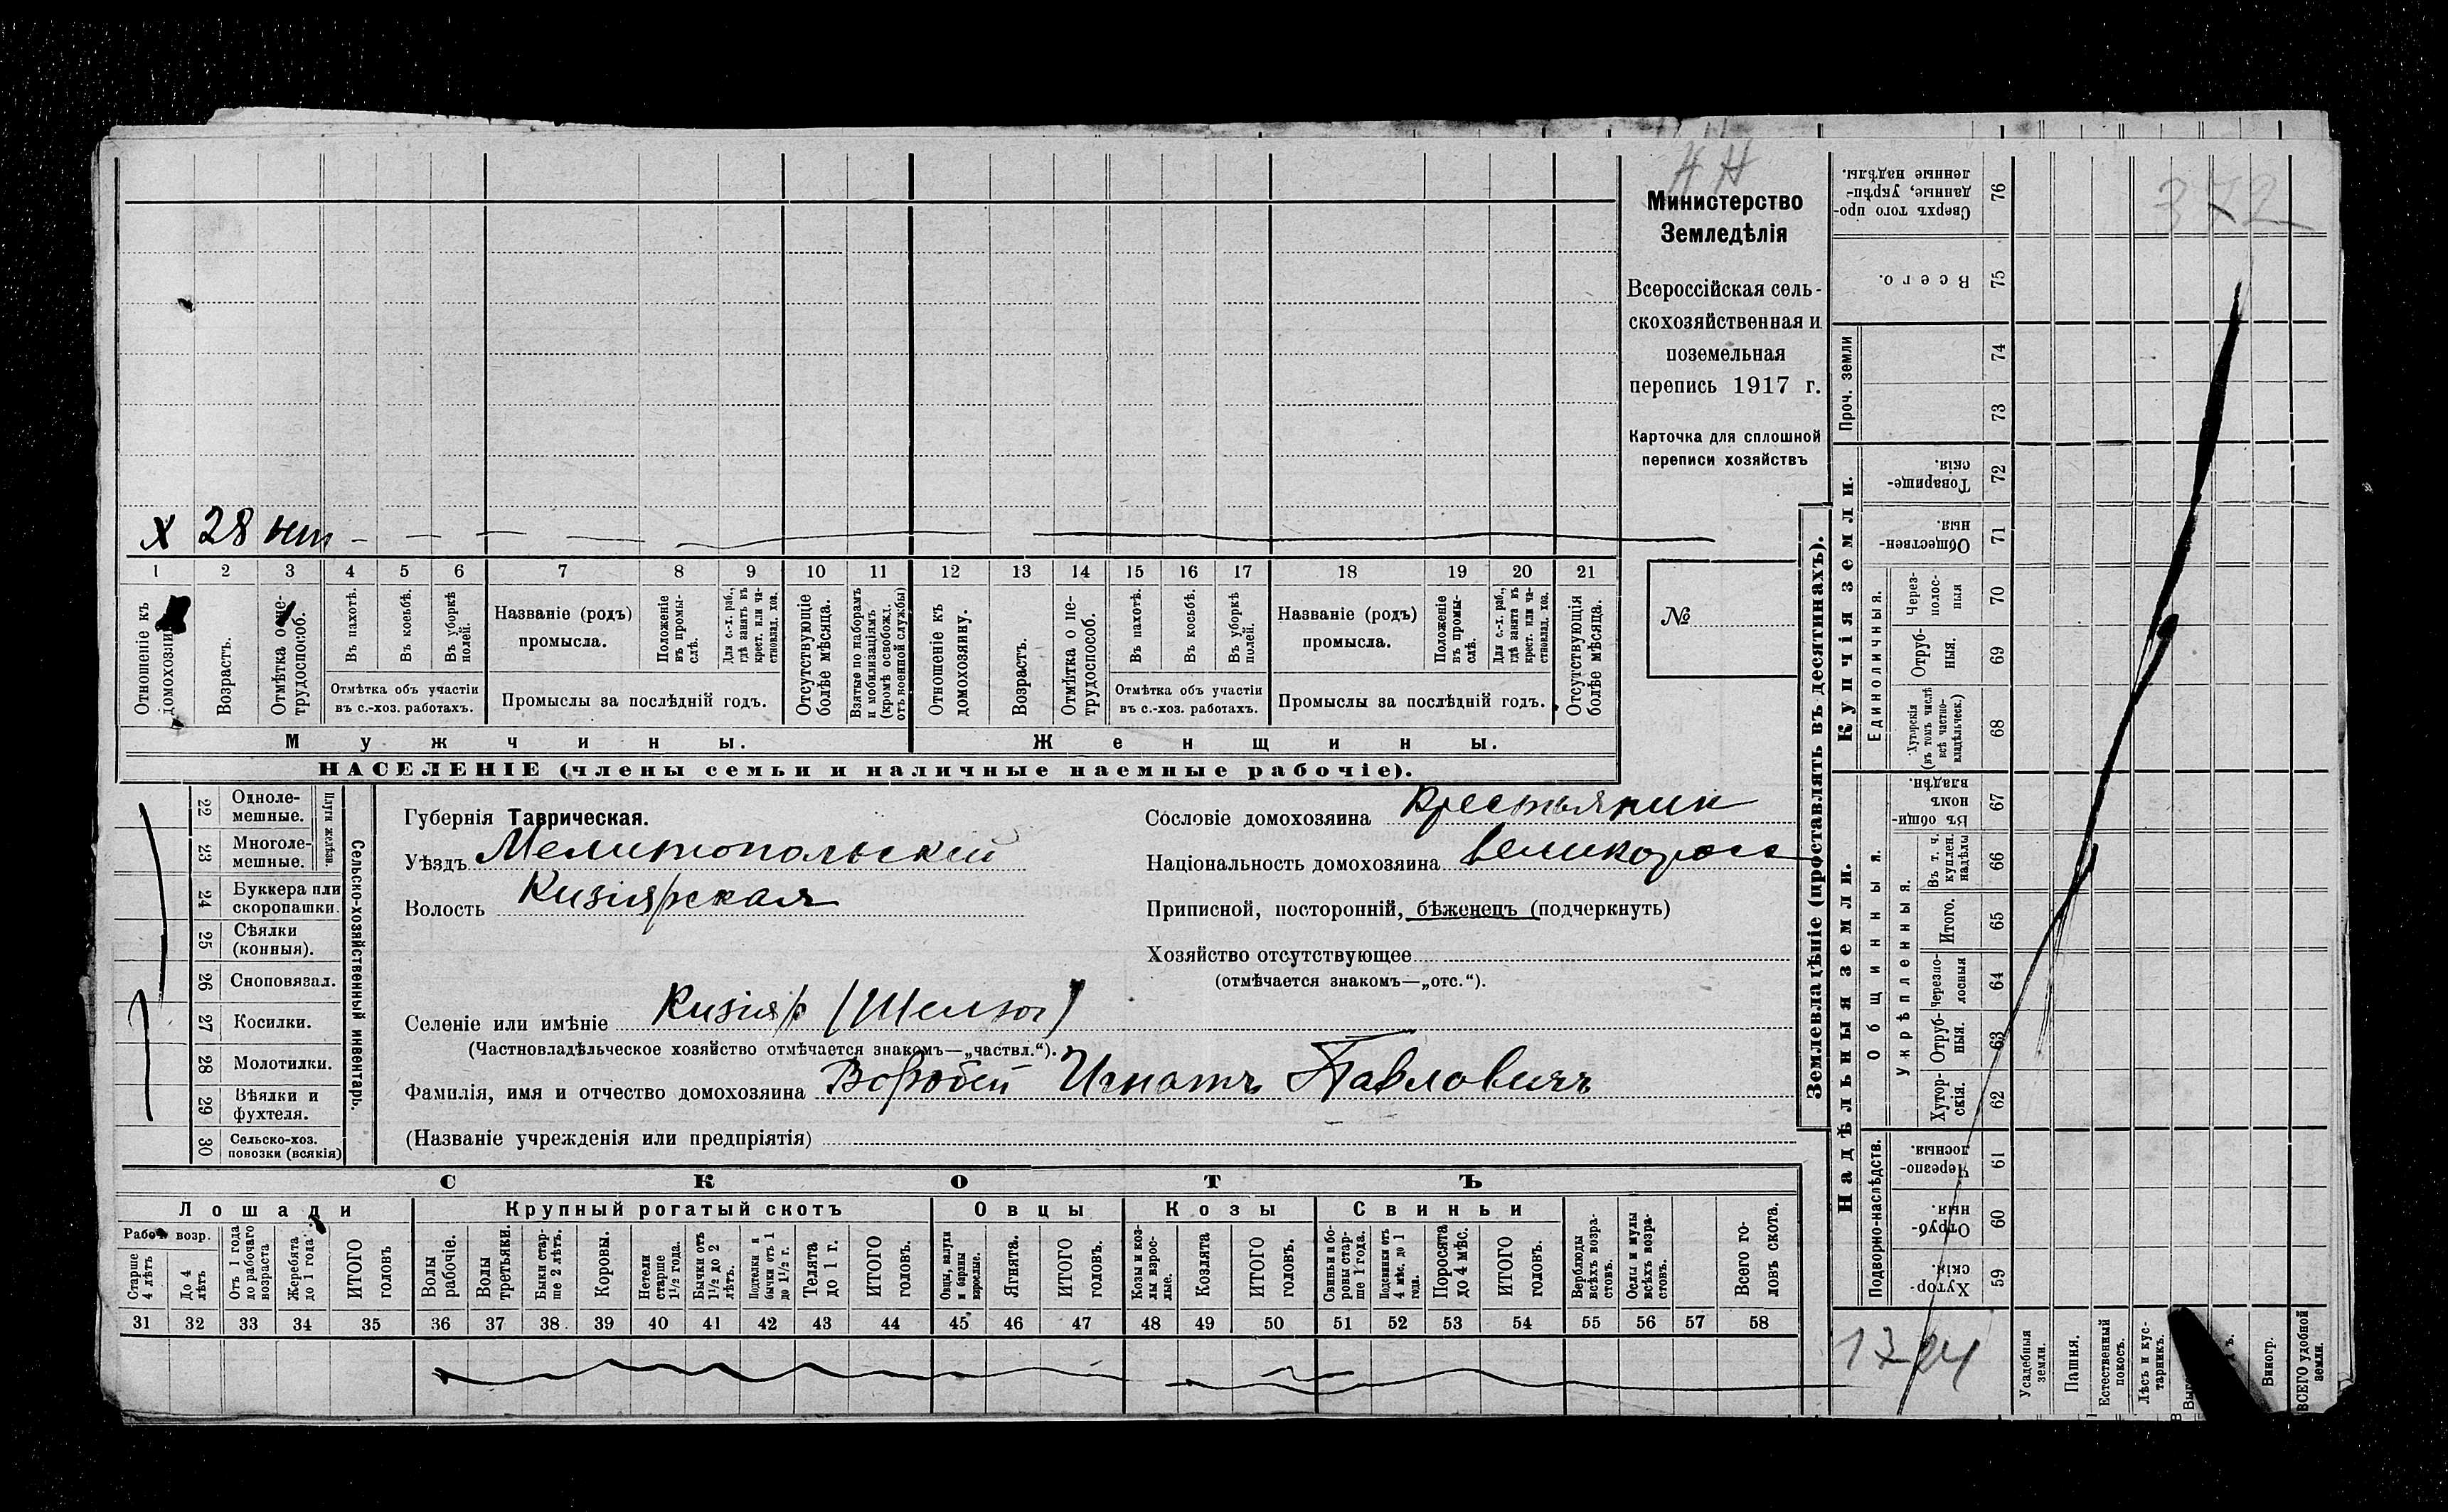 НН
Министерство
Земледѣлія
Всероссійская сель-
скохозяйственная и
поземельная
перепись 1917 г.
Карточка для сплошной
переписи хозяйствъ
№
х 28 нет
1 2 3 4 5 6 7 8 9 10 11 12 13 14 15 16 17 18 19 20 21
Отношеніе къ
домохозяину.
Возрастъ.
Отмѣтка о не-
трудоспособ.
Въ пахотѣ.
Въ косьбѣ.
Въ уборкѣ
полей.
Отмѣтка объ участіи
въ с.-хоз. работахъ.
Названіе (родъ)
промысла.
Положеніе
въ промы-
слѣ.
Для с.-х. раб.,
гдѣ занятъ въ
крест. или ча-
стновлад. хоз.
Промыслы за послѣдній годъ.
Отсутствующіе
болѣе мѣсяца.
Взятые по наборамъ
и мобилизаціямъ
(кромѣ освобожд.
отъ военной службы)
Отношеніе къ
домохозяину.
Возрастъ.
Отмѣтка о не-
трудоспособ.
Въ пахотѣ.
Въ косьбѣ.
Въ уборкѣ
полей.
Отмѣтка объ участіи
въ с.-хоз. работахъ.
Названіе (родъ)
промысла.
Положеніе
въ промы-
слѣ.
Для с.-х. раб.,
гдѣ занята въ
крест. или ча-
стновлад. хоз.
Промыслы за послѣдній годъ.
Отсутствующія
болѣе мѣсяца.
Мужчины.
Женщины.
НАСЕЛЕНІЕ (члены семьи и наличные наемные рабочіе).
22 Одноле-
мешные.
23 Многоле-
мешные.
Плуги желѣзн.
24 Буккера или
скоропашки.
25 Сѣялки
(конныя).
26 Сноповязал.
27 Косилки.
28 Молотилки.
29 Вѣялки и
фухтеля.
30 Сельско-хоз.
повозки (всякія)
Сельско-хозяйственный инвентарь.
Губернія Таврическая.
Уѣздъ Мелитопольский
Волость Кизіярская
Селеніе или имѣніе Кизіяр (Шелюг)
(Частновладѣльческое хозяйство отмѣчается знакомъ—„частвл.“).
Фамилія, имя и отчество домохозяина Воробей Игнатъ Павловичъ
(Названіе учрежденія или предпріятія)
Сословіе домохозяина Крестьянин
Національность домохозяина великоросс
Приписной, посторонній, бѣженецъ (подчеркнуть)
Хозяйство отсутствующее
(отмѣчается знакомъ—„отс.“).
СКОТЪ
Лошади
Крупный рогатый скотъ
Овцы
Козы
Свиньи
Рабоч возр.
Старше
4 лѣтъ
До 4
лѣтъ
Отъ 1 года
до рабочаго
возраста
Жеребята
до 1 года
ИТОГО
головъ
Волы
рабочіе.
Волы
третьяки.
Быки стар-
ше 2 лѣтъ.
Коровы.
Нетели
старше
1½ года.
Бычки отъ
1½ до 2
лѣтъ.
Подтелки и
бычки отъ 1
до 1½ г.
Телята
до 1 г.
ИТОГО
головъ.
Овцы, валухи
и бараны
взрослые.
Ягнята.
ИТОГО
головъ.
Козы и коз-
лы взрос-
лые.
Козлята
ИТОГО
головъ.
Свиньи и бо-
ровы стар-
ше 1 года.
Подсвинки отъ
4 мѣс. до 1
года.
Поросята
до 4 мѣс.
ИТОГО
головъ.
Верблюды
всѣхъ возра-
стовъ.
Ослы и мулы
всѣхъ возра-
стовъ.
Всего го-
ловъ скота.
31 32 33 34 35 36 37 38 39 40 41 42 43 44 45 46 47 48 49 50 51 52 53 54 55 56 57 58
Землевладѣніе (проставлять въ десятинахъ).
Надѣльныя земли.
Купчія земли.
Проч. земли
Подворно-наслѣдств.
Общинныя.
Укрѣпленныя.
Единоличныя.
372
76 Сверхъ того про-
данные, укрѣп-
ленные надѣлы.
75 Всего.
74
73
72 Товарище-
скія.
71 Обществен-
ныя.
70 Через-
полос-
ныя
69 Отруб-
ныя.
68 Хуторскія
(въ томъ числѣ
всѣ частно-
владѣльческ.)
67 Въ общин-
номъ
владѣн.
66 Въ т. ч.
куплен.
надѣлы
65 Итого.
64 Черезпо-
лосныя
63 Отруб-
ныя.
62 Хутор-
скія.
61 Черезпо-
лосныя.
60 Отруб-
ныя.
59 Хутор-
скія.
Усадебная
земли.
Пашня.
Естественный
покосъ.
Лѣсъ и кус-
тарникъ.
Виногр.
ВСЕГО удобной
земли.